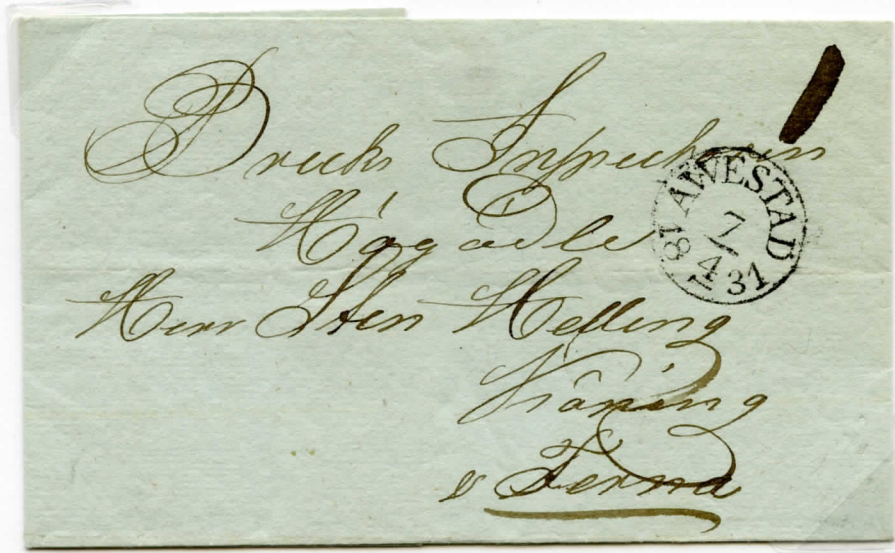 Brucks Inspectoren
Högädle
Herr Sten Helling
Näning
&
Ferna
AWESTAD
7
4
18 31